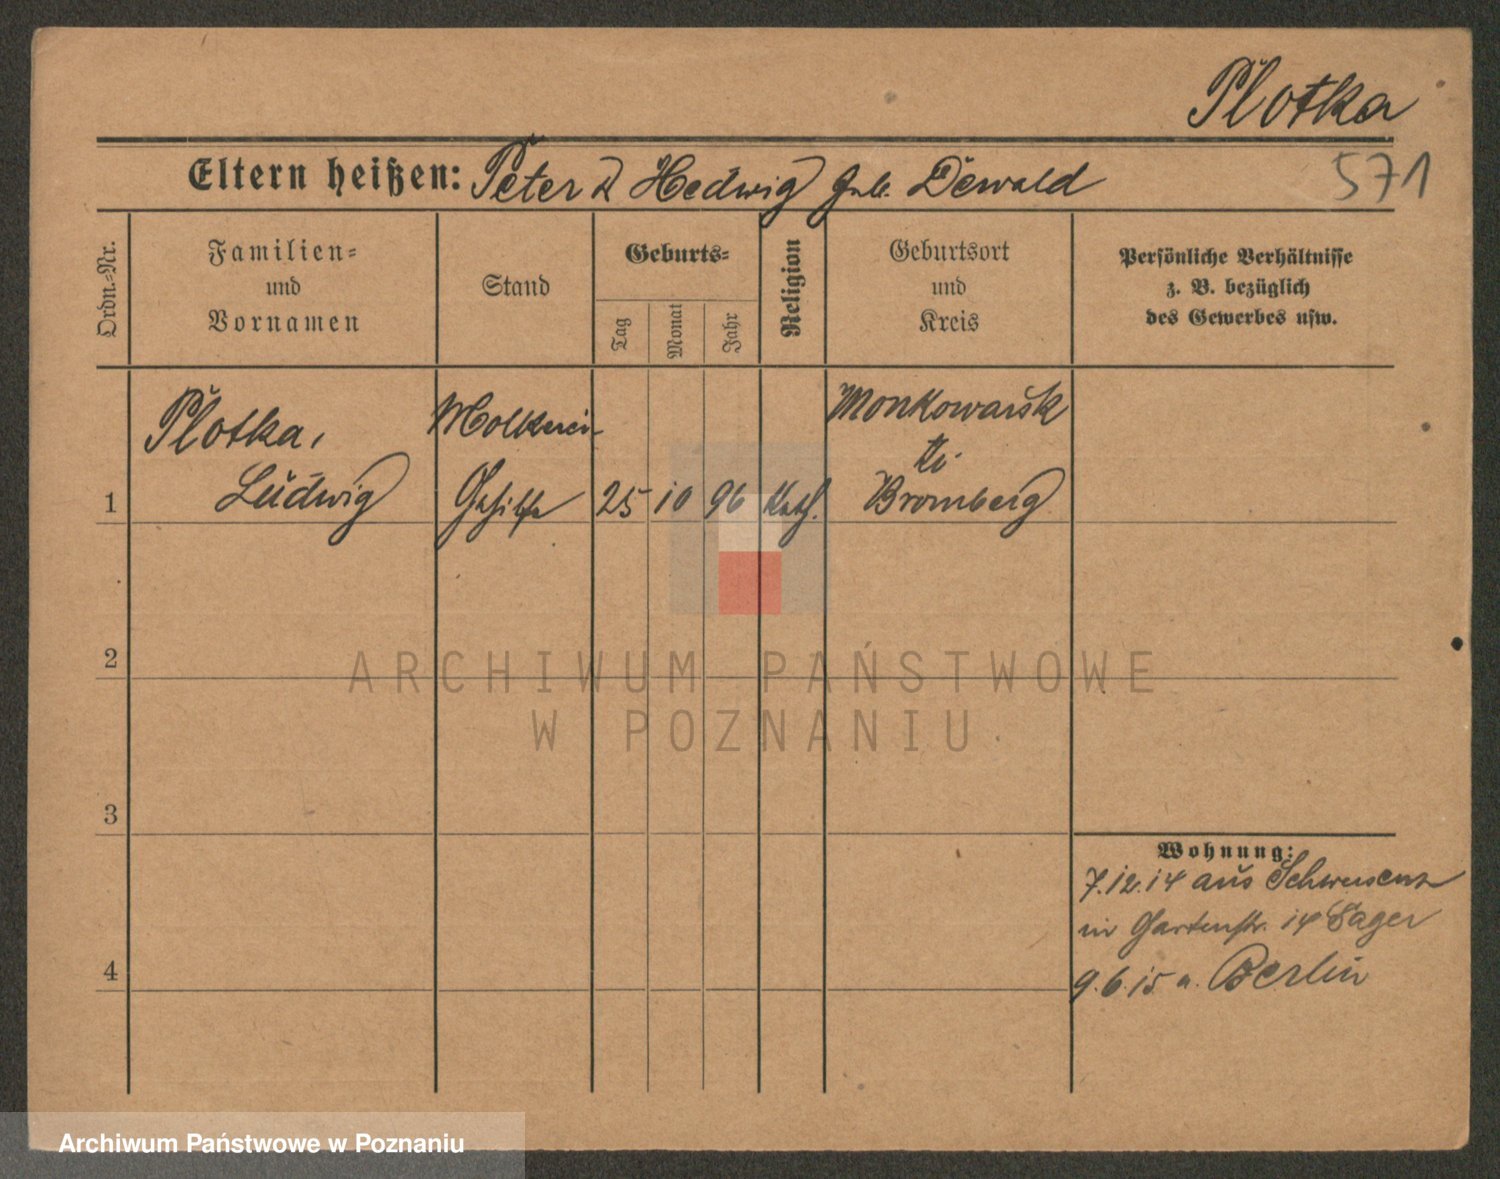 Plotka
Eltern heißen: Peter u Hedwig geb. Dewald
571
Ordn.-Nr.
Familien-
und
Vornamen
Stand
Geburts-
Tag
Monat
Jahr
Religion
Geburtsort
und
Kreis
Persönliche Verhältnisse
z. B. bezüglich
des Gewerbes usw.
Plotka,
Ludwig
Molkerei-
Gehilfe
25 10 96 Kath.
Monkowarsk
Bromberg
1
2
3
4
Wohnung:
7.12.14 aus Schwersenz
in Gartenstr. 14 Sager
9.6.15 n. Berlin
ARCHIWUM PAŃSTWOWE
W POZNANIU
Archiwum Państwowe w Poznaniu